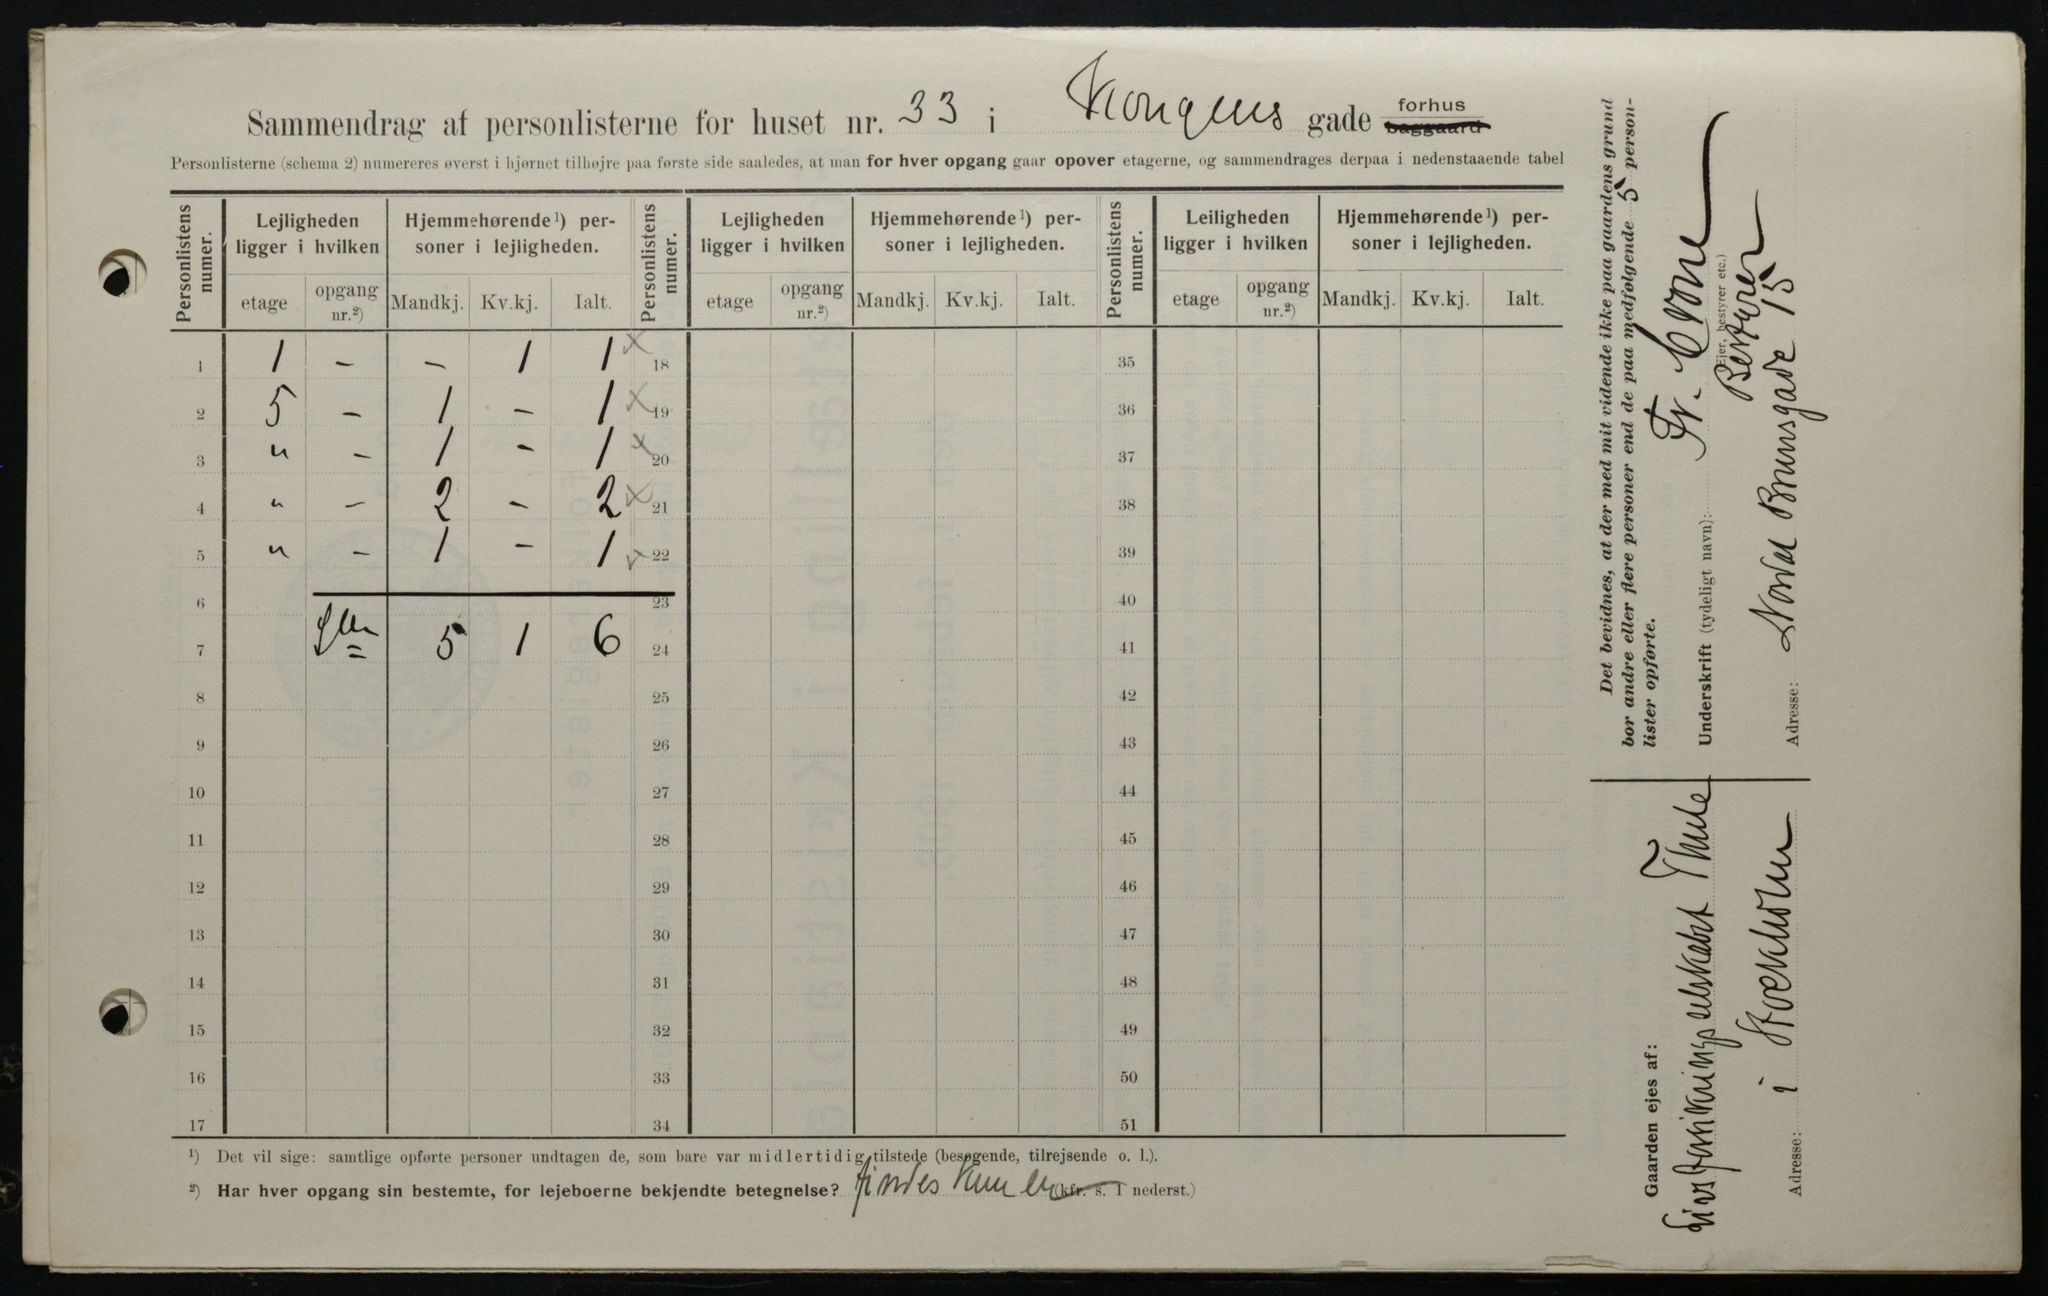 Sammendrag af personlisterne for huset nr. 33 i Kongens gade forhus baggaard
Personlisterne (schema 2) numereres øverst i hjørnet tilhøjre paa første side saaledes, at man for hver opgang gaar opover etagerne, og sammendrages derpaa i nedenstaaende tabel
Personlistens numer. Lejligheden ligger i hvilken Hjemmehørende¹) personer i lejligheden. Personlistens numer. Lejligheden ligger i hvilken Hjemmehørende¹) personer i lejligheden. Personlistens numer. Leiligheden ligger i hvilken Hjemmehørende¹) personer i lejligheden.
etage opgang nr.²) Mandkj. Kv.kj. Ialt. etage opgang nr.²) Mandkj. Kv.kj. Ialt. etage opgang nr.²) Mandkj. Kv.kj. Ialt.
1 1 - - 1 1 x 18 35
2 5 - 1 - 1 x 19 36
3 " - 1 - 1 x 20 37
4 " - 2 - 2 x 21 38
5 " - 1 - 1 x 22 39
6 23 40
7 5 1 6 24 41
8 25 42
9 26 43
10 27 44
11 28 45
12 29 46
13 30 47
14 31 48
15 32 49
16 33 50
17 34 51
¹) Det vil sige: samtlige opførte personer undtagen de, som bare var midlertidig tilstede (besøgende, tilrejsende o. l.).
²) Har hver opgang sin bestemte, for lejeboerne bekjendte betegnelse? findes kun en (kfr. s. 1 nederst.)
Det bevidnes, at der med mit vidende ikke paa gaardens grund
bor andre eller flere personer end de paa medfølgende 5 person-
lister opførte.
Underskrift (tydeligt navn): Fr. Crone
(Ejer, bestyrer etc.)
Bestyrer
Adresse: Nordal Brunsgade 15
Gaarden ejes af:
Livsforsikringsselskabet Thule
Adresse: i Stockholm